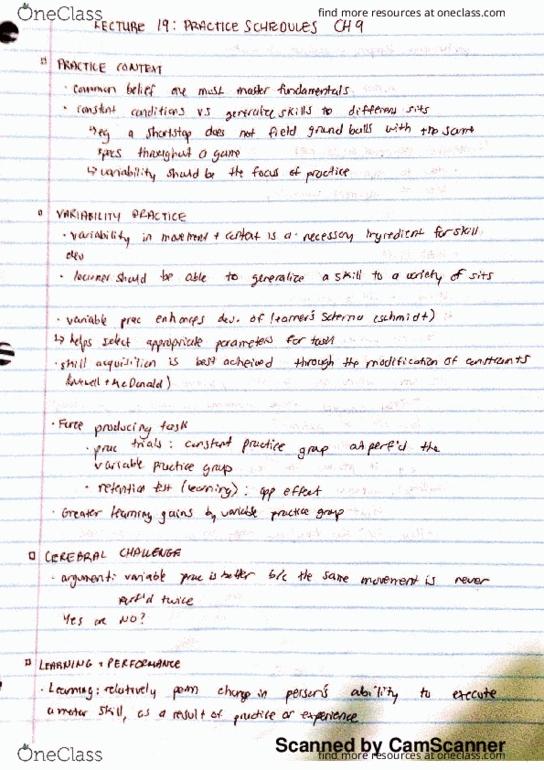 OneClass
find more resources at oneclass.com
LECTURE 19: PRACTICE SCHEDULES CH 9
find more resources at oneclass.com
PRACTICE CONTEXT
· common belief are must master fundamentals
· constant conditions vs generalize skills to different sits
↳ eg a shortstop does not field ground balls with the same
specs throughout a game
↳ variability should be the focus of practice
VARIABILITY PRACTICE
· variability in movement + context is a necessary ingredient for skill
dev
· learner should be able to generalize a skill to a variety of sits
· variable prac enhances dev. of learner's schema (schmidt)
↳ helps select appropriate parameters for task
· skill acquisition is best acheived through the modification of constraints
+ McDonald)
· Force producing task
· prac trials: constant practice group outperf'd the
variable practice group
· retention test (learning): opp effect
· Greater learning gains by variable practice group
CEREBRAL CHALLENGE
· argument: variable prac is better b/c the same movement is never
perf'd twice
Yes or NO?
LEARNING + PERFORMANCE
· Learning: relatively perm change in person's ability to execute
a motor skill, as a result of practice or experience
Scanned by CamScanner
OneClass
find more resources at oneclass.com